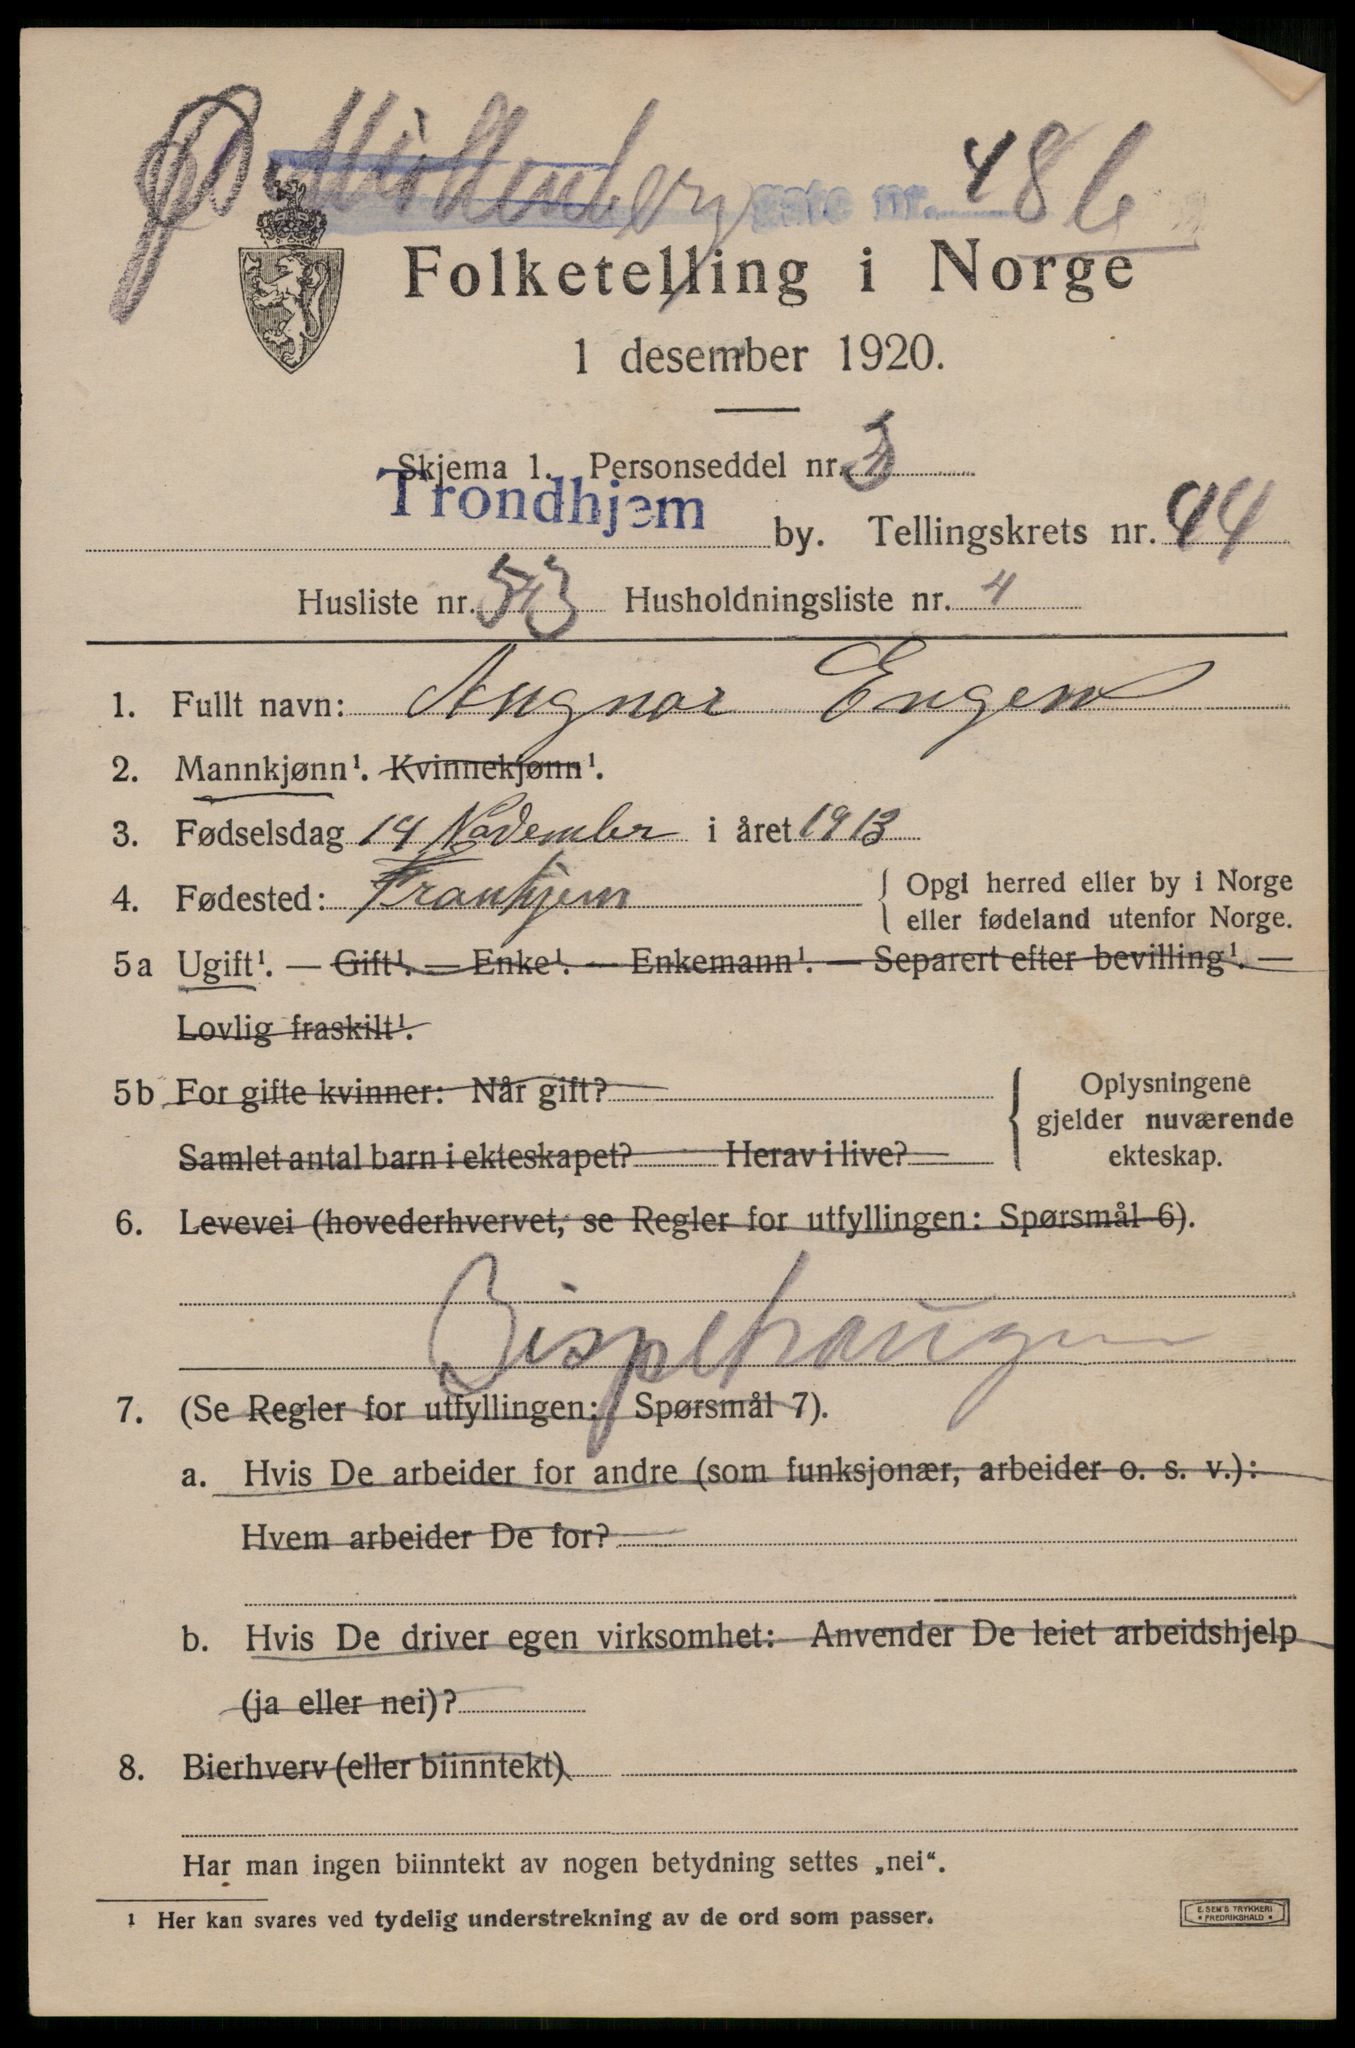 Ø. Møllenberg gate nr. 48 b
Folketelling i Norge
1 desember 1920.
Skjema 1. Personseddel nr. 3
Trondhjem by. Tellingskrets nr. 44
Husliste nr. 53 Husholdningsliste nr. 4
1. Fullt navn: Augnar Engen
2. Mannkjønn¹. Kvinnekjønn¹.
3. Fødselsdag 14 November i året 1913
4. Fødested: Tronhjem
{ Opgi herred eller by i Norge
eller fødeland utenfor Norge.
5a Ugift¹. — Gift¹. — Enke¹. — Enkemann¹. — Separert efter bevilling¹. —
Lovlig fraskilt¹.
5b For gifte kvinner: Når gift?
Samlet antal barn i ekteskapet? Herav i live?
{ Oplysningene
gjelder nuværende
ekteskap.
6. Levevei (hovederhvervet, se Regler for utfyllingen: Spørsmål 6).
Bispehaugen
7. (Se Regler for utfyllingen: Spørsmål 7).
a. Hvis De arbeider for andre (som funksjonær, arbeider o. s. v.):
Hvem arbeider De for?
b. Hvis De driver egen virksomhet: Anvender De leiet arbeidshjelp
(ja eller nei)?
8. Bierhverv (eller biinntekt)
Har man ingen biinntekt av nogen betydning settes „nei“.
¹ Her kan svares ved tydelig understrekning av de ord som passer.
E. SEM'S TRYKKERI
FREDRIKSHALD